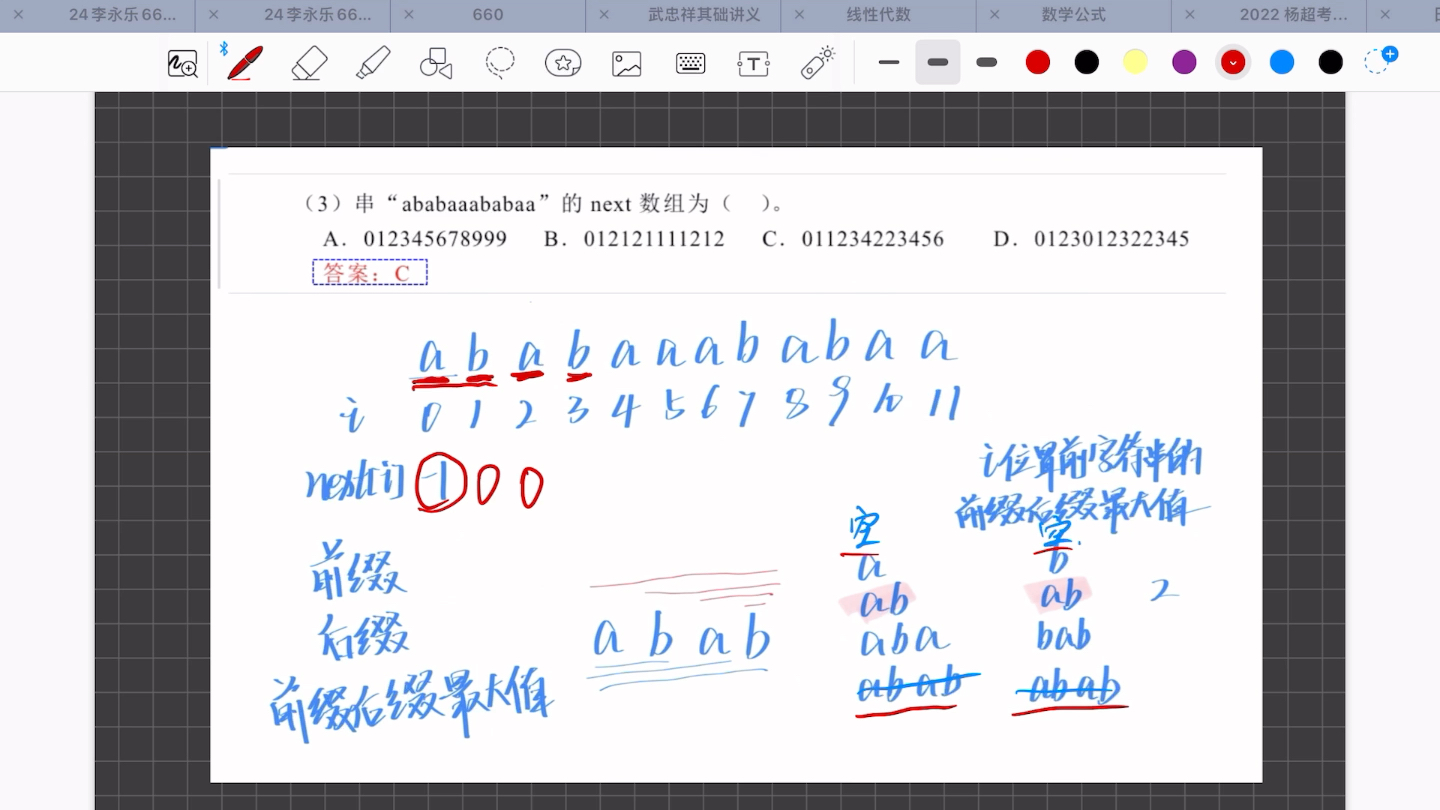 24李永乐66...
24李永乐66...
660
武忠祥其础讲义
线性代数
数学公式
2022 杨超考...
T
（3）串“ababaaababaa”的 next 数组为（ ）。
A．012345678999 B．012121111212 C．011234223456 D．0123012322345
答案：C
a b a b a a a b a b a a
i 0 1 2 3 4 5 6 7 8 9 10 11
next[i] -1 0 0
i位置前字符串的
前缀后缀最大值
空 空
前缀 a b
ab ab 2
后缀 a b a b aba bab
前缀后缀最大值 abab abab